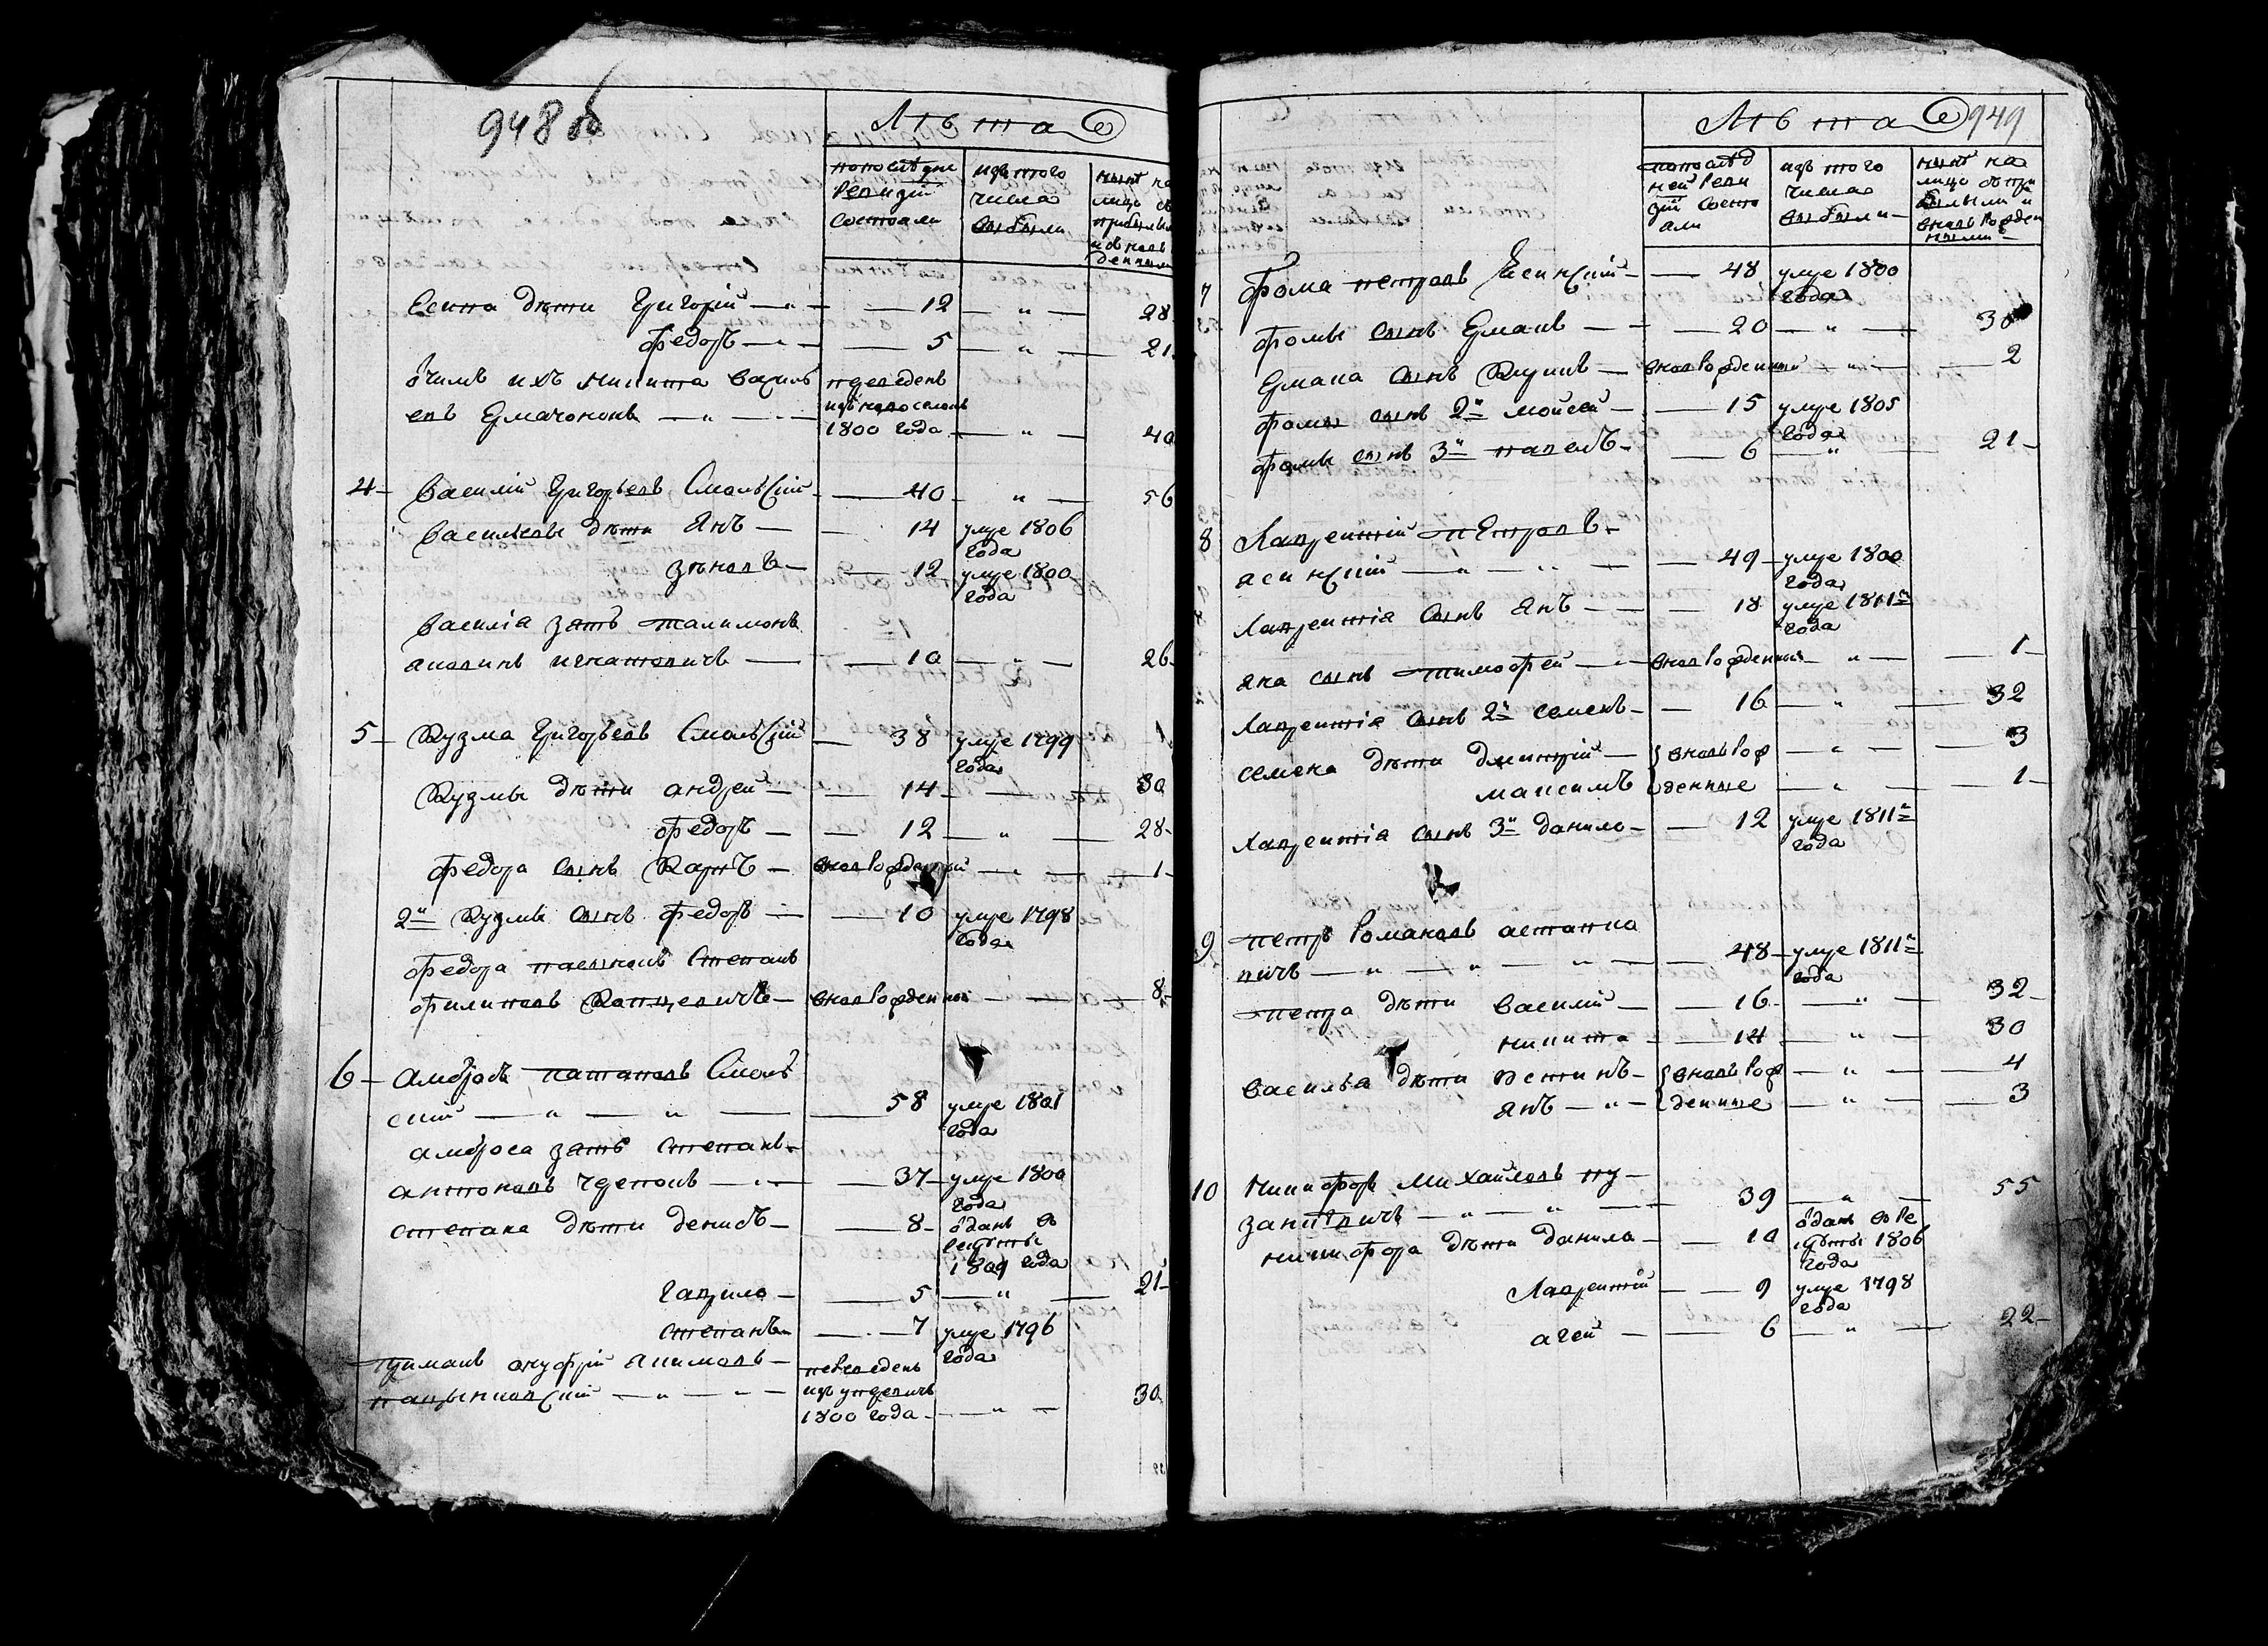 948 об
Лѣта
по последне
ревизіи
состояли
изъ того
числа
выбыли
нынѣ на
лицо съ
прибылы
и вновь
денными
Есипа дѣти Григорій — 12 — „ — 28
Федоръ — 5 — „ — 21
очимъ ихъ Никита Василь преведенъ
евъ Ермачонокъ — „ —
1800 года — „ — 40
4 — Василій Григорьевъ Смольскій — 40 — „ — 56
Васильевы дѣти Янъ — 14 умре 1806
года
— 12 умре 1800
года
Василія зять
игнатовичъ — 10 — „ — 26
5 — Кузма Григорьевъ Смольскій — 38 умре 1799
года
Кузмы дѣти Андрей — 14 — 30
Федоръ — 12 — „ — 28
Федора сынъ Карпъ — вновьрожденный — „ — 1
2й Кузмы сынъ Федоръ — 10 умре 1798
года
Федора пасынокъ Степанъ
Филиповъ — вновьрожденный — 8
6 — Амбросъ Потаповъ Смоль
скій — „ — „ — 58 умре 1801
года
Амброса зять Степанъ
Антоновъ — 37 умре 1800
года
Степана дѣти Денисъ — 8 — отданъ въ
рекруты
1809 года
Гаврило — 5 — „ — 21
Степанъ — 7 умре 1796
года
Приманъ Онуфрій Якимовъ — преведенъ
изъ
1800 года — „ — 30
949
Лѣта
по послѣд
ней реви
зіи состо
яли
изъ того
числа
выбыли
нынѣ на
лицо съ при
былыми и
вновь рожден
ными
7 Фома Петровъ Ясинскій — 48 умре 1800
года
Фомы сынъ Ермакъ — 20 — „ — 36
Ермака сынъ — вновьрожденный — „ — 2
Фомы сынъ 2й Мойсей — 15 умре 1805
года
Фомы сынъ 3й Павелъ — 6 — „ — 21
8 Лаврентій Петровъ
Ясинскій — „ — „ — 49 — умре 1800
года
Лаврентія сынъ Янъ — 18 умре 1811го
года
Яна сынъ Тимофей — вновьрожденный — „ — 1
Лаврентія сынъ 2й Семенъ — 16 — „ — 32
Семена дѣти Дмитрій — вновьрож — „ — 3
Максимъ денные — „ — 1
Лаврентія сынъ 3й Данило — 12 умре 1811го
года
9 Петръ Романовъ Астапко
вичъ — „ — „ — „ — 48 — умре 1811го
года
Петра дѣти Василій — 16 — „ — 32
Никита — 14 — „ — 30
Василья дѣти Устинъ — вновьрож — „ — 4
Янъ — „ — денные — „ — 3
10 Никифоръ Михайловъ Пу
заневичъ — „ — „ — 39 — „ — 55
Никифора дѣти Данила — 10 отданъ въ ре
круты 1806
года
Лаврентій — 9 умре 1798
года
Агей — 6 — „ — 22